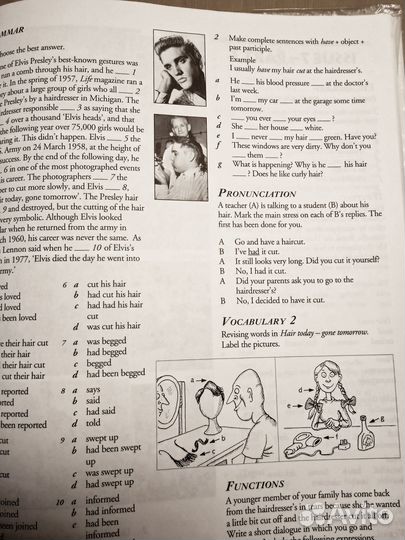 MMAR
oose the best answer.
e of Elvis Presley's best-known gestures was
run a comb through his hair, and he __ 1
it. In the spring of 1957, Life magazine ran a
y about a large group of girls who all __ 2
e Presleys' by a hairdresser in Michigan. The
hairdresser responsible __ 3 as saying that she
4 over a thousand 'Elvis heads', and that
the following year over 75,000 girls would be
ring it. This didn't happen. Elvis __ 5 the
S. Army on 24 March 1958, at the height of
success. By the end of the following day, he
6 in one of the most photographed events
his career. The photographers __ 7 the
ber to cut more slowly, and Elvis __ 8,
ir today, gone tomorrow'. The Presley hair
9 and destroyed, but the cutting of the hair
very symbolic. Although Elvis looked
lar when he returned from the army in
rch 1960, his career was never the same. As
Lennon said when he __ 10 of Elvis's
h in 1977, 'Elvis died the day he went into
rmy.'
loved
s loved
loved
been loved
their hair cut
their hair
their hair
cut their hair
reported
orted
reported
been reported
cut
cut
joined
ined
een joined
6 a cut his hair
b had cut his hair
c had had his hair
cut
d was cut his hair
7 a was begged
b had begged
c begged
d had been begged
8 a says
b said
c had said
d told
9 a swept up
b had been swept
up
c was swept up
d had swept up
10 a informed
b had informed
c had been
informed
2 Make complete sentences with have + object +
past participle.
Example
I usually have my hair cut at the hairdresser's.
a He __ his blood pressure __ at the doctor's
last week.
b I'm __ my car __ at the garage some time
tomorrow.
c __ you ever __ your eyes __?
d She __ her house __ white.
e I __ never __ my hair __ green. Have you?
f These windows are very dirty. Why don't you
__ them __?
g What is happening? Why is he __ his hair
__? Does he like curly hair?
PRONUNCIATION
A teacher (A) is talking to a student (B) about his
hair. Mark the main stress on each of B's replies. The
first has been done for you.
A Go and have a haircut.
B I've had it cut.
A It still looks very long. Did you cut it yourself?
B No, I had it cut.
A Did your parents ask you to go to the
hairdresser's?
B No, I decided to have it cut.
VOCABULARY 2
Revising words in Hair today – gone tomorrow.
Label the pictures.
a
b
c
d
e
f
g
FUNCTIONS
A younger member of your family has come back
from the hairdresser's in tears because she/he wanted
a little bit cut off and
Write a short dialogue in which you
Avito